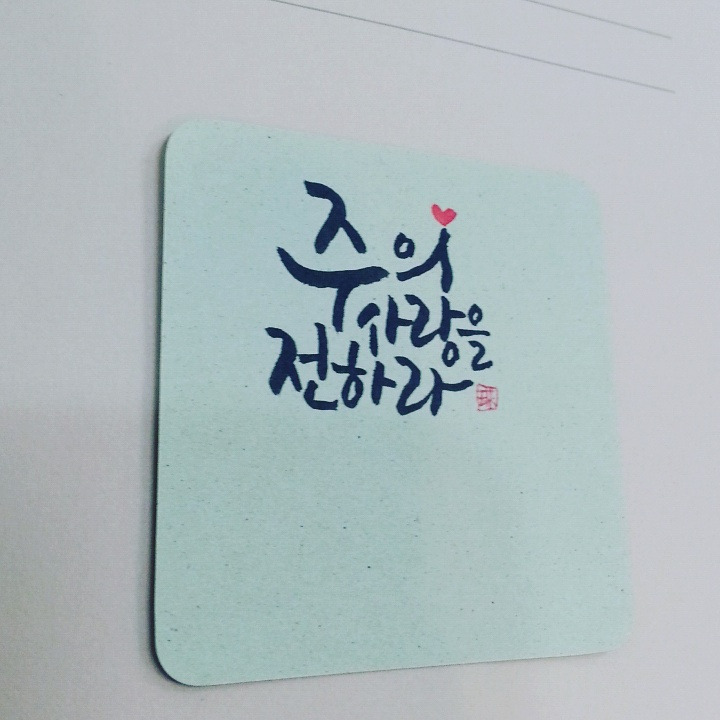 주의
사랑을
전하라